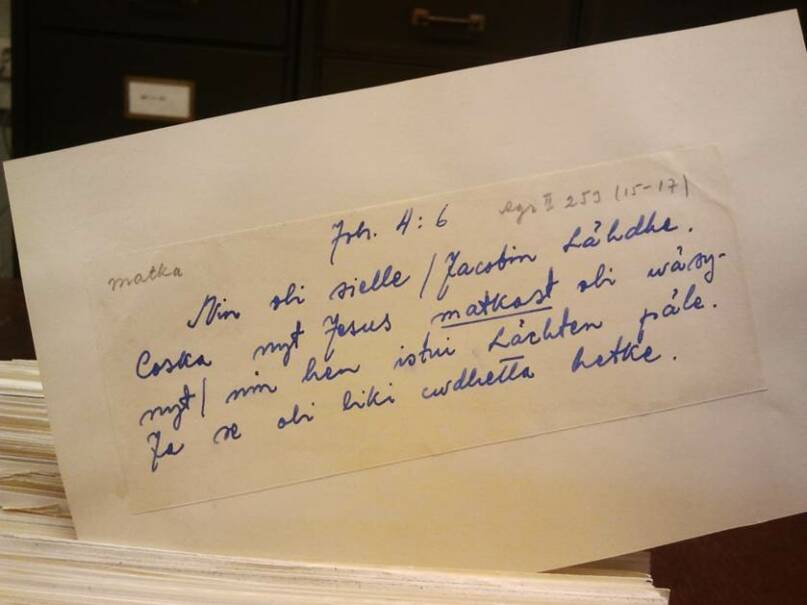 matka
Joh. 4:6
Agr II 253 (15-17)
Nin oli sielle / Jacobin Lähdhe.
Coska nyt Jesus matkast oli wäsy-
nyt / nin hen istui Lächten päle.
Ja se oli liki cwdhetta hetke.